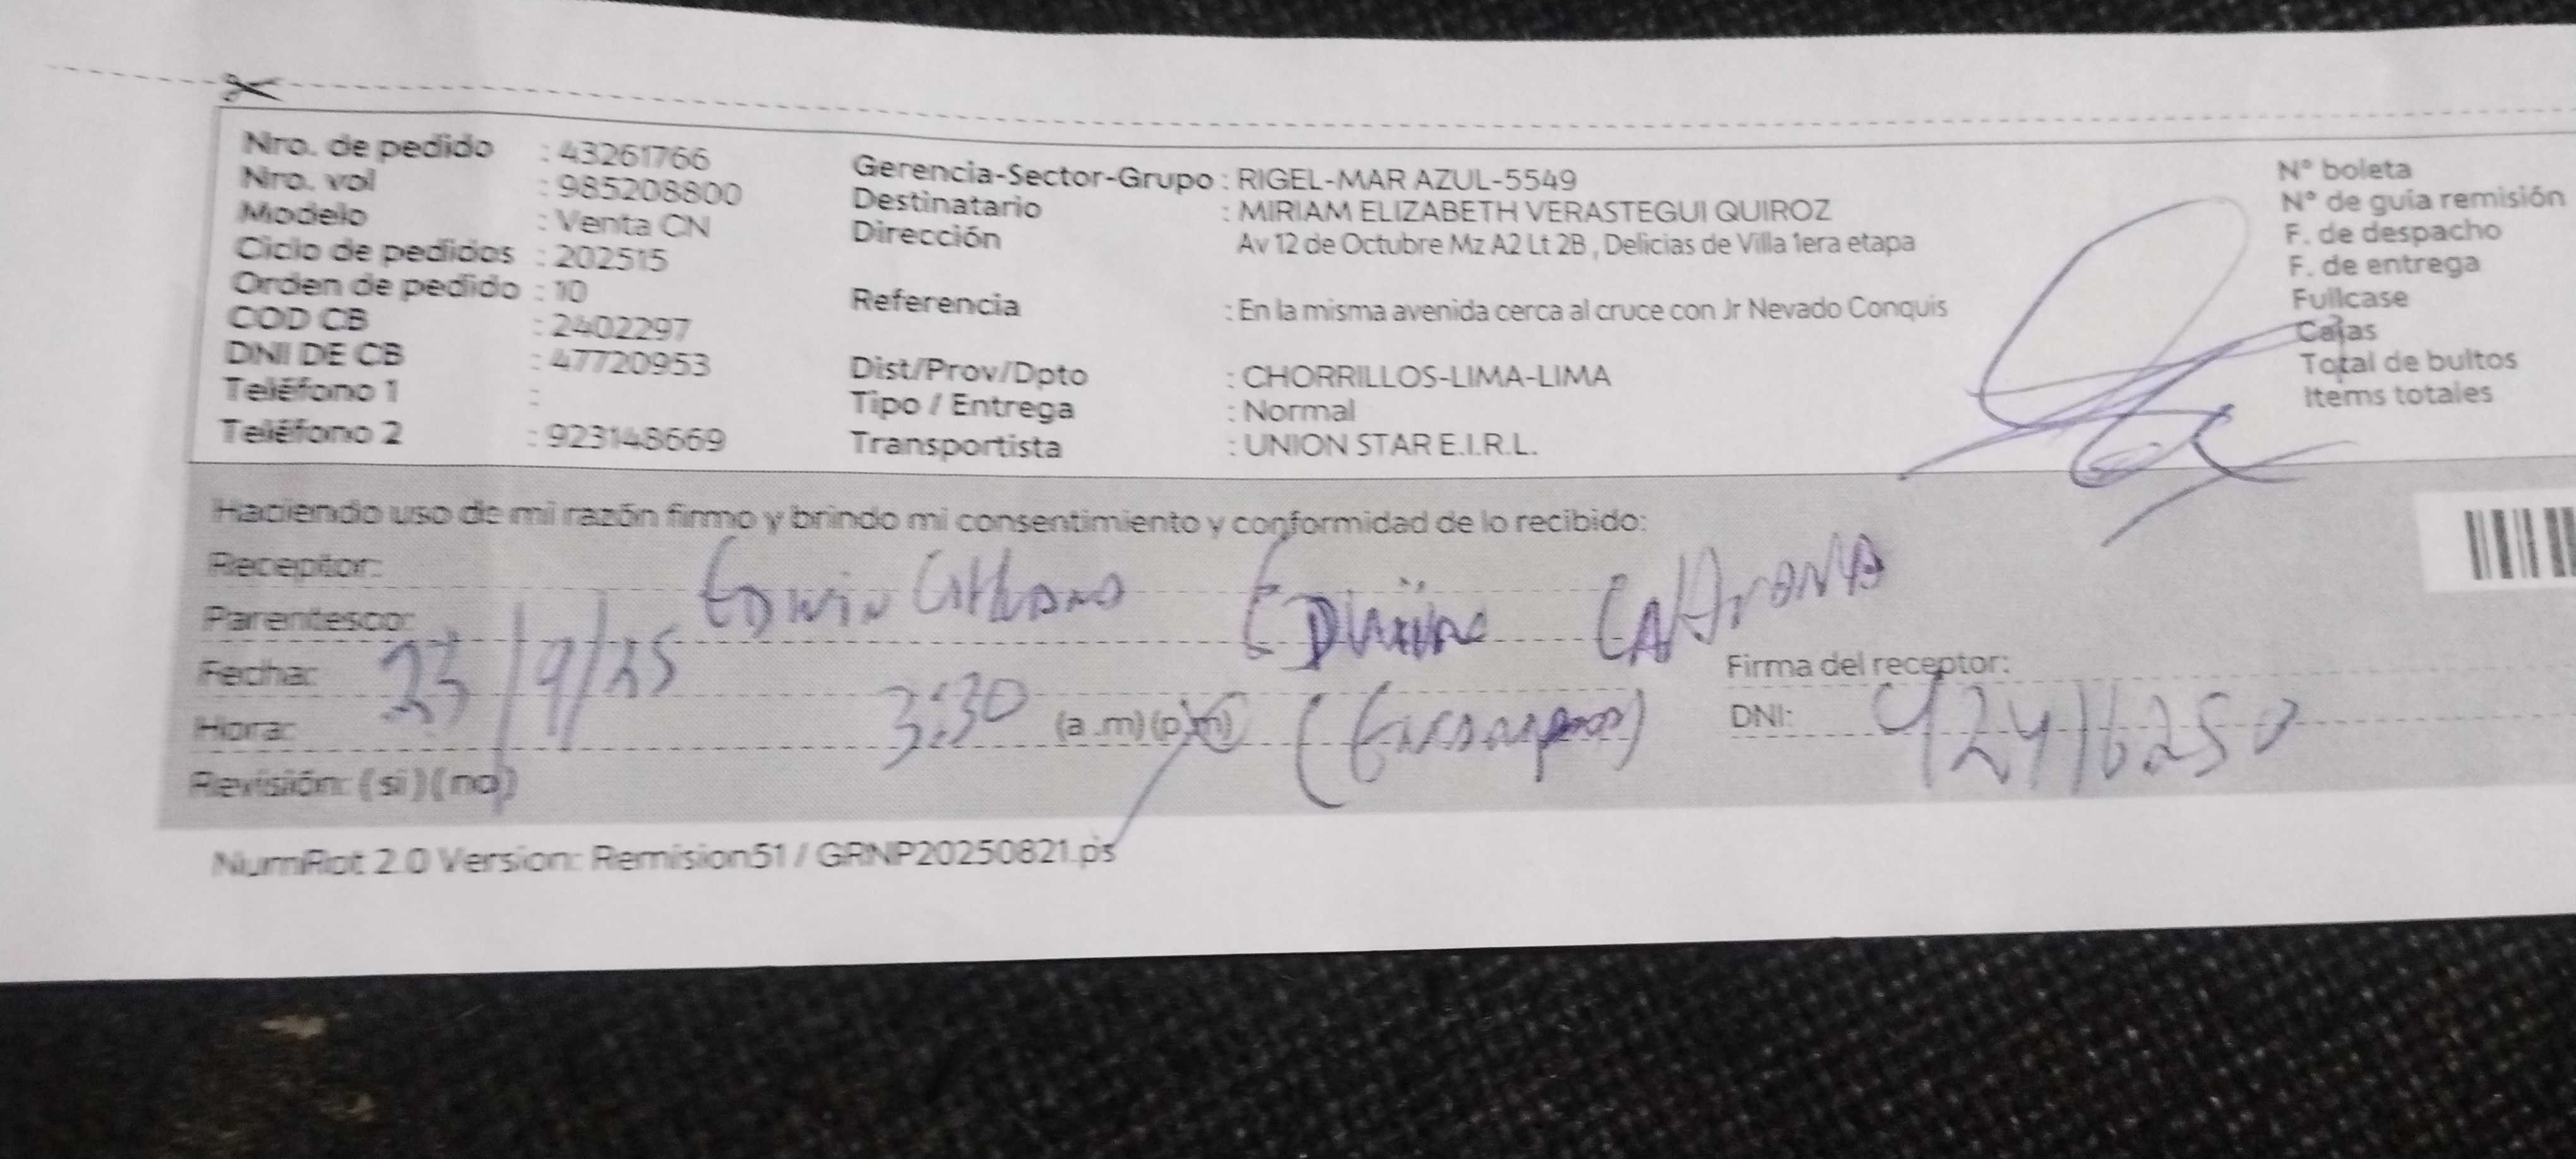 Nro. de pedido : 43261766
Nro. vol : 985208800
Modelo : Venta CN
Ciclo de pedidos : 202515
Orden de pedido : 10
COD CB : 2402297
DNI DE CB : 47720953
Teléfono 1 :
Teléfono 2 : 923148669
Gerencia-Sector-Grupo : RIGEL-MAR AZUL-5549
Destinatario : MIRIAM ELIZABETH VERASTEGUI QUIROZ
Dirección Av 12 de Octubre Mz A2 Lt 2B , Delicias de Villa 1era etapa
Referencia : En la misma avenida cerca al cruce con Jr Nevado Conquis
Dist/Prov/Dpto : CHORRILLOS-LIMA-LIMA
Tipo / Entrega : Normal
Transportista : UNION STAR E.I.R.L.
N° boleta
N° de guía remisión
F. de despacho
F. de entrega
Fullcase
Cajas
Total de bultos
Items totales
Haciendo uso de mi razón firmo y brindo mi consentimiento y conformidad de lo recibido:
Receptor: Edwin
Parentesco:
Fecha: 23/9/25
Firma del receptor:
Hora: 3:30 (a .m) (p.m)
DNI:
Revisión: (si) (no)
NumRot 2.0 Version: Remision51 / GRNP20250821.ps